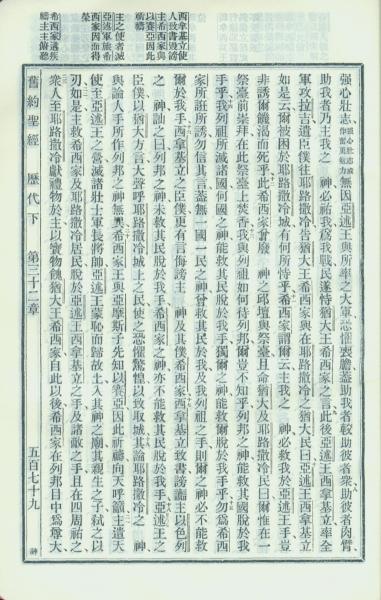 西拿基立使
人致書毀謗
主希西家與
以賽亞因此
祈禱
主之使者滅
亞述軍旅希
西家因而得
榮
希西家遘疾
禱主主俯聽
强心壯志强心壯志或作奮勇毅力無因亞述王與所率之大軍恐懼喪膽蓋助我者較助彼者衆助彼者肉臂
助我者乃主我之 神必祐我爲我戰民遂恃猶大王希西家之言此後亞述王西拿基立率全
軍攻拉吉遣臣僕往耶路撒冷詣猶大王希西家與在耶路撒冷之猶大民曰亞述王西拿基立
如是云爾被困於耶路撒冷城有何所恃乎希西家謂爾云主我之 神必救我於亞述王手豈
非誘爾饑渴而死乎此希西家曾廢 神之邱壇與祭臺且命猶大及耶路撒冷民曰爾惟在一
祭臺前崇拜在此祭臺上焚香我與列祖如何待列邦爾豈不知乎列邦之神能救其國脫於我
手乎我列祖所滅諸國何國之神能救其民脫於我手獨爾之神能救爾脫於我手乎爾勿爲希西
家所誑所誘勿信其言蓋無一國一民之神曾救其民脫於我及我列祖之手則爾之神必不能救
爾於我手西拿基立之臣僕更有言侮謗主 神及其僕希西家西拿基立致書謗讟主以色列
之 神訕之曰列邦之神未救其民脫於我手希西家之神亦不能救其民脫於我手亞述王之
臣僕以猶大方言大聲呼耶路撒冷城上之民使之恐懼驚惶以致取城其論耶路撒冷之 神
與論人手所作列邦之神無異希西家王與亞摩斯子先知以賽亞因此祈禱向天呼籲主遣天
使至亞述王之營滅諸壯士軍長將帥亞述王蒙恥而歸故土入其神之廟其親生之子弒之以
刃如是主救希西家及耶路撒冷居民脫於亞述王西拿基立之手及諸敵之手且在四周祐之
衆人至耶路撒冷獻禮物於主以寶物饋猶大王希西家自此以後希西家在列邦目中爲尊大
舊約聖經 歷代下 第三十二章 五百七十九 神